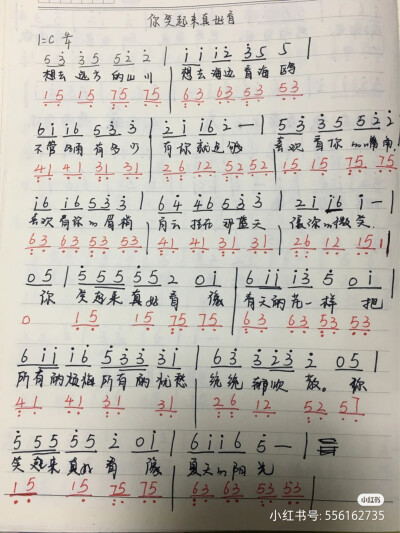 你笑起来真好看
1=C 4/4
5 3 3 5 5 2 2 | i i i 2 3 5 5 |
想去远方的山川 想去海边看海鸥
15 15 75 75 63 63 53 53
6 i i 6 5 3 3 | 2 i i 6 2 — | 5 3 3 5 5 2 2 |
不管风雨有多少 有你就足够 喜欢看你的嘴角
41 41 31 31 26 12 52 52 15 15 75 75
i 6 i 6 5 3 3 | 6 4 4 6 5 3 3 | 2 i i 6 i — |
喜欢看你的眉梢 白云挂在那蓝天 像你的微笑
63 63 53 53 41 41 31 31 26 12 15 1
0 5 | 5 5 5 5 5 2 0 i | 6 i i i 3 5 0 i |
你 笑起来真好看 像 春天的花一样 把
0 15 15 75 75 63 63 53 53
6 i i i 6 5 3 3 3 i | 6 3 3 2 3 2 0 5 |
所有的烦恼所有的忧愁 统统都吹散。你
41 41 31 31 26 12 52 57
5 5 5 5 5 2 0 i | 6 i i 6 5 — |
笑起来真好看 像 夏天的阳光
15 15 75 75 63 63 53 53
小红书
小红书号: 556162735